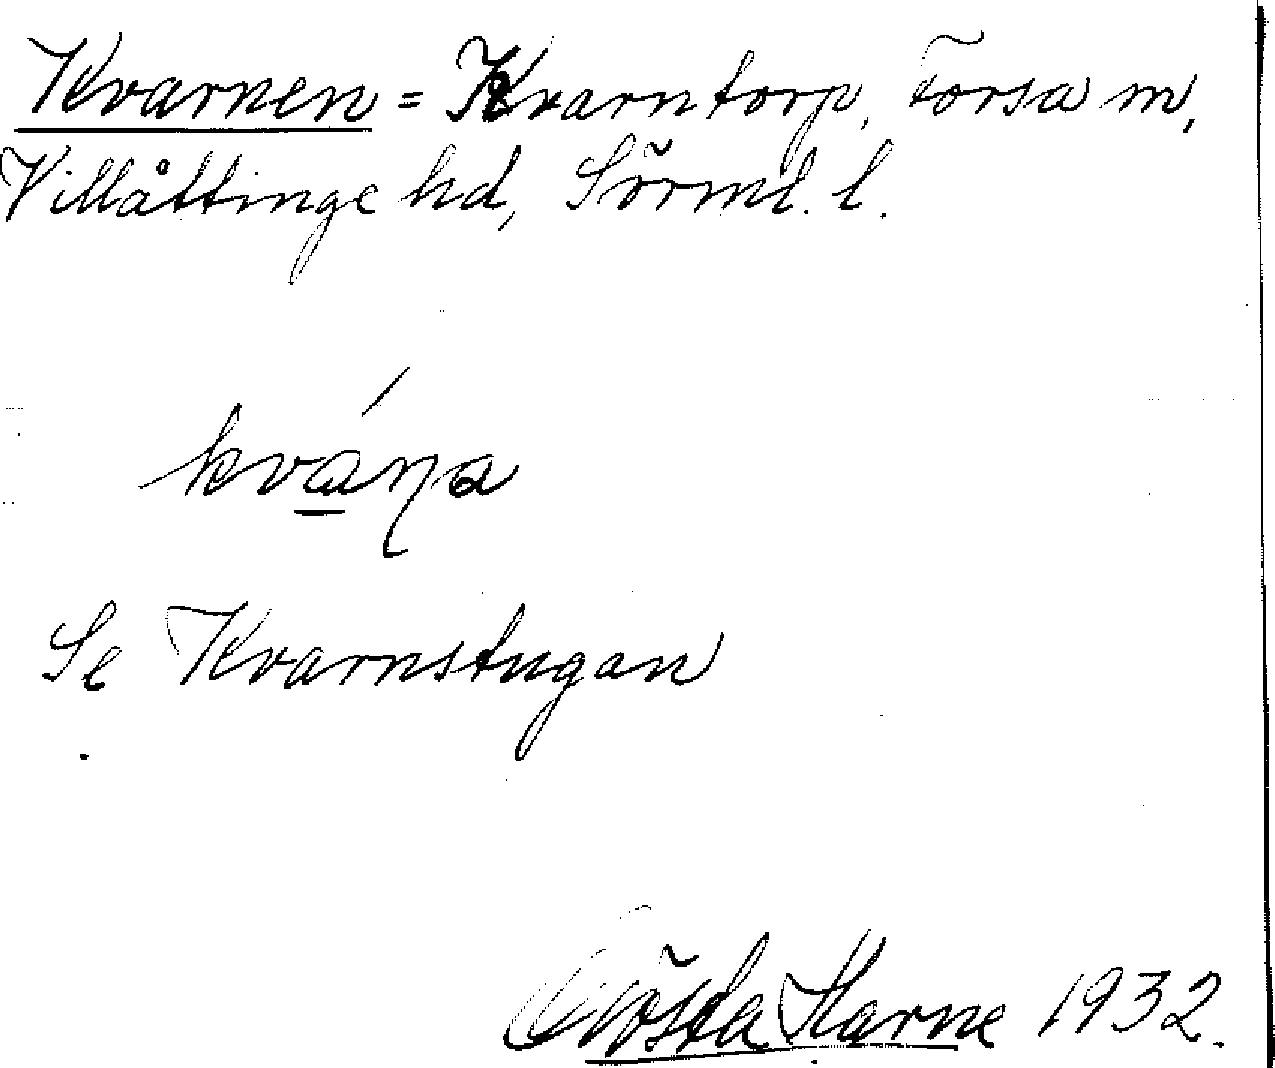 Kvarnen = Kvarntorp, Forsa sn,
Villåttinge hd, Sörml. l.
kvána
Se Kvarnstugan
Gösta Harne 1932.